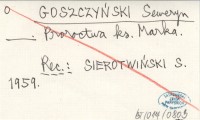 GOSZCZYŃSKI Seweryn
—. Proroctwa ks. Marka.
Rec.: SIEROTWIŃSKI S.
1959.